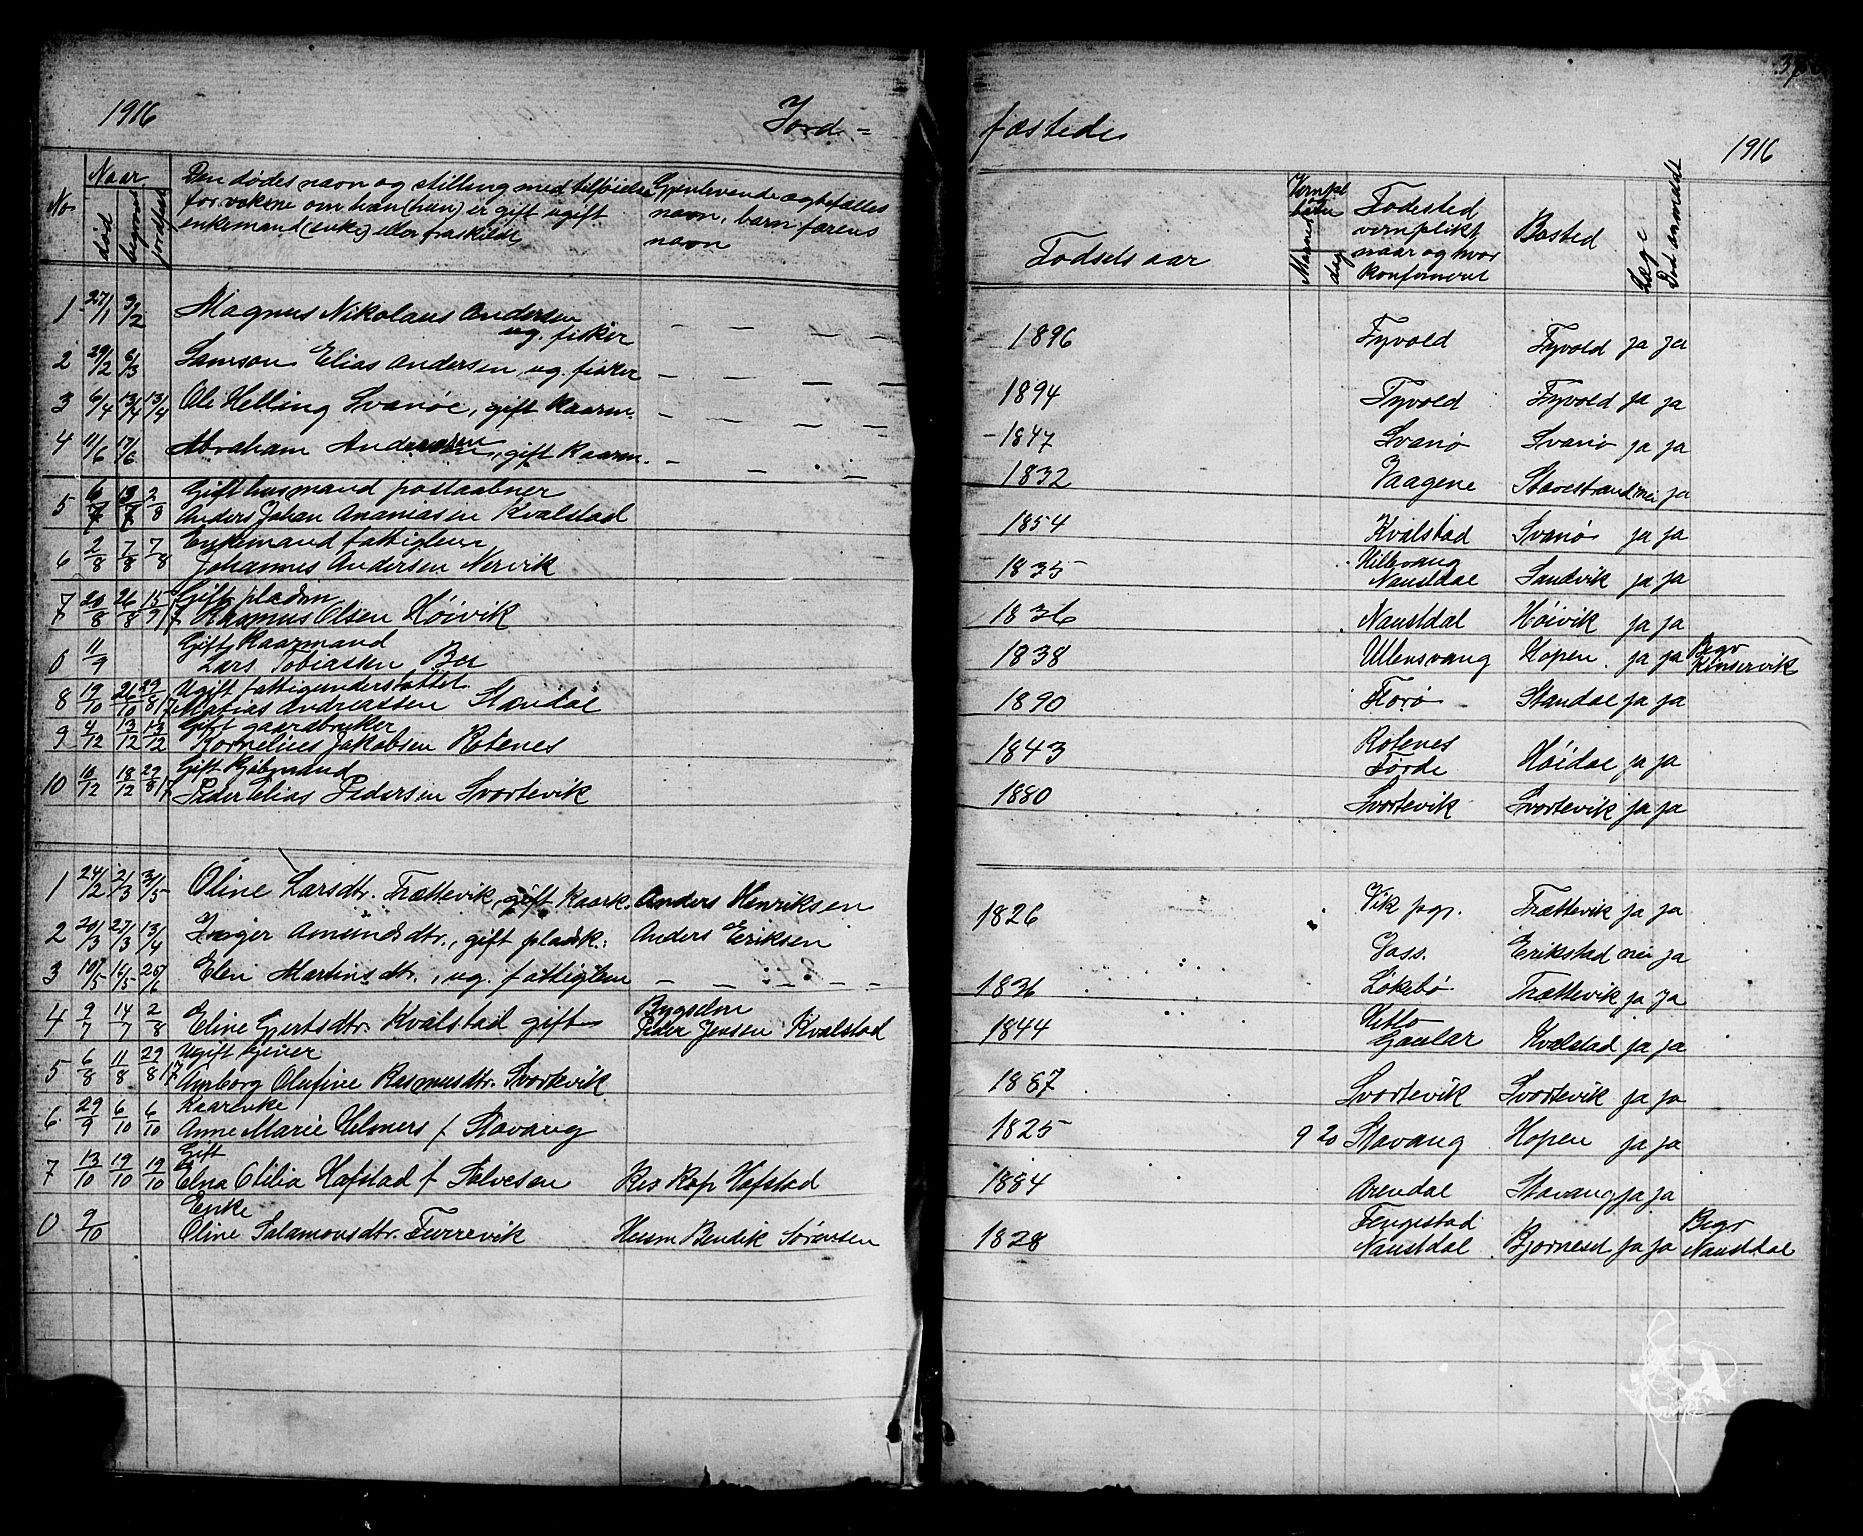 1916 Jord = fæstede 1916
No Naar død begravet jordfæst Den dødes navn og stilling med tilføielse for voksne om han (hun) er gift ugift enkemand (enke) eller fraskildt Gjenlevende ægtefælles navn, barn farens navn Fødselsaar Maaned dag Fødested vernplikt naar og hvor konfirmeret Bosted Læge Død anmeldt
1 27/1 3/2 Magnus Nikolaus Andersen ug. fisker — — — — 1896 Fyvold Fyvold ja ja
2 29/2 6/3 Samson Elias Andersen, ug. fisker — — — — 1894 Fyvold Fyvold ja ja
3 6/4 13/4 13/4 Ole Helling Svanøe, gift kaarm. — — — — 1847 Svanø Svanø ja ja
4 11/6 17/6 Abraham Andersen, gift kaarm. — — — 1832 Vaagene Stavestrand nei ja
5 6/7 13/7 2/8 Gift husmand postaabner
Anders Johan Ananiasen Kvalstad 1854 Kvalstad Svanø ja ja
6 2/8 7/8 7/8 Enkemand fattiglem
Johannes Andersen Nervik 1835 Naustdal Sandvik ja ja
7 20/8 26/8 15/9 17 Gift pladsm
Rasmus Olsen Høivik 1836 Naustdal Høivik ja ja
0 11/9 Gift Kaarmand
Lars Tobiassen Bu 1838 Ullensvang Hopen ja ja Begr Kinservik
8 19/10 26/10 29/8 17 Ugift fattigunderstøttet
Matias Andreassen Standal 1890 Florø Standal ja ja
9 4/12 13/12 13/12 Gift gaardbruker
Kornelius Jakobsen Rotenes 1843 Rotenes Førde Høidal ja ja
10 10/12 18/12 29/8 17 Gift Kjøbmand
Peder Elias Pedersen Svortevik 1880 Svortevik Svortevik ja ja
1 24/2 2/3 31/5 Oline Larsdtr. Trættevik, gift kaark. Anders Henriksen 1826 Vik pgj. Trættevik ja ja
2 20/3 27/3 13/4 Inger Amundsdtr., gift pladsk: Anders Eriksen Erikstad nei ja
3 10/5 16/5 25/6 Elen Martinsdtr., ug. fattiglem — — — — 1836 Løkebø Trættevik ja ja
4 9/7 14/7 2/8 Eline Gjertsdtr. Kvalstad gift Bygselm
Peder Jensen Kvalstad 1844 Gaular Kvalstad ja ja
5 6/8 11/8 29/8 17 Ugift tjener
Anborg Olufine Rasmusdtr. Svortevik 1887 Svortevik Svortevik ja ja
6 29/9 6/10 6/10 Kaarenke
Anne Marie Helmers f Stavang 1825 9 20 Stavang Hopen ja ja
7 13/10 19/10 19/10 Gift
Elna Otilia Hofstad f Salvesen Res Kap Hofstad 1884 Arendal Stavang ja ja
0 9/10 Enke
Oline Salamonsdtr. Furrevik Husm Bendik Sørensen 1828 Fengestad Naustdal Bjørneset ja ja Begr Naustdal